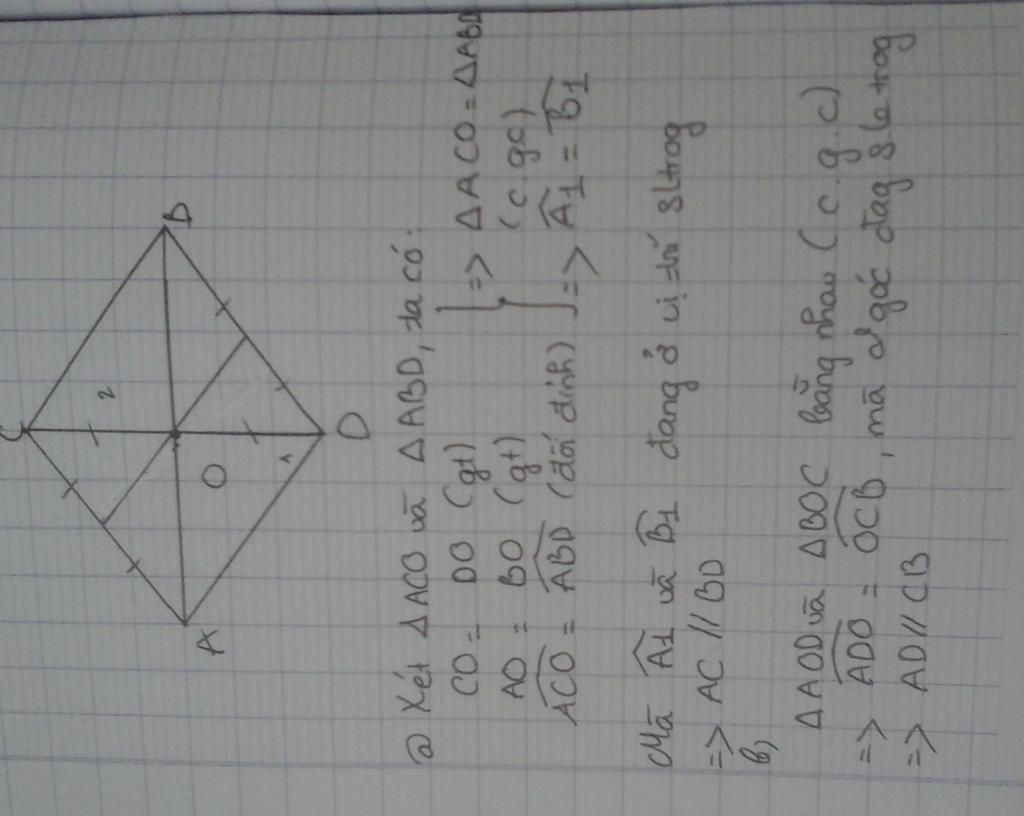 C
2
B
O
1
A
D
a) Xét ΔACO và ΔABD, ta có:
CO = DO (gt)
AO = BO (gt)
ACO = ABD (đối đỉnh)
=> ΔACO = ΔABD
(c gc)
=> A1 = B1
Mà A1 và B1 đang ở vị trí sltrog
=> AC // BD
b)
ΔAOD và ΔBOC bằng nhau (c.g.c)
=> ADO = OCB, mà 2 góc đag sle trog
=> AD // CB